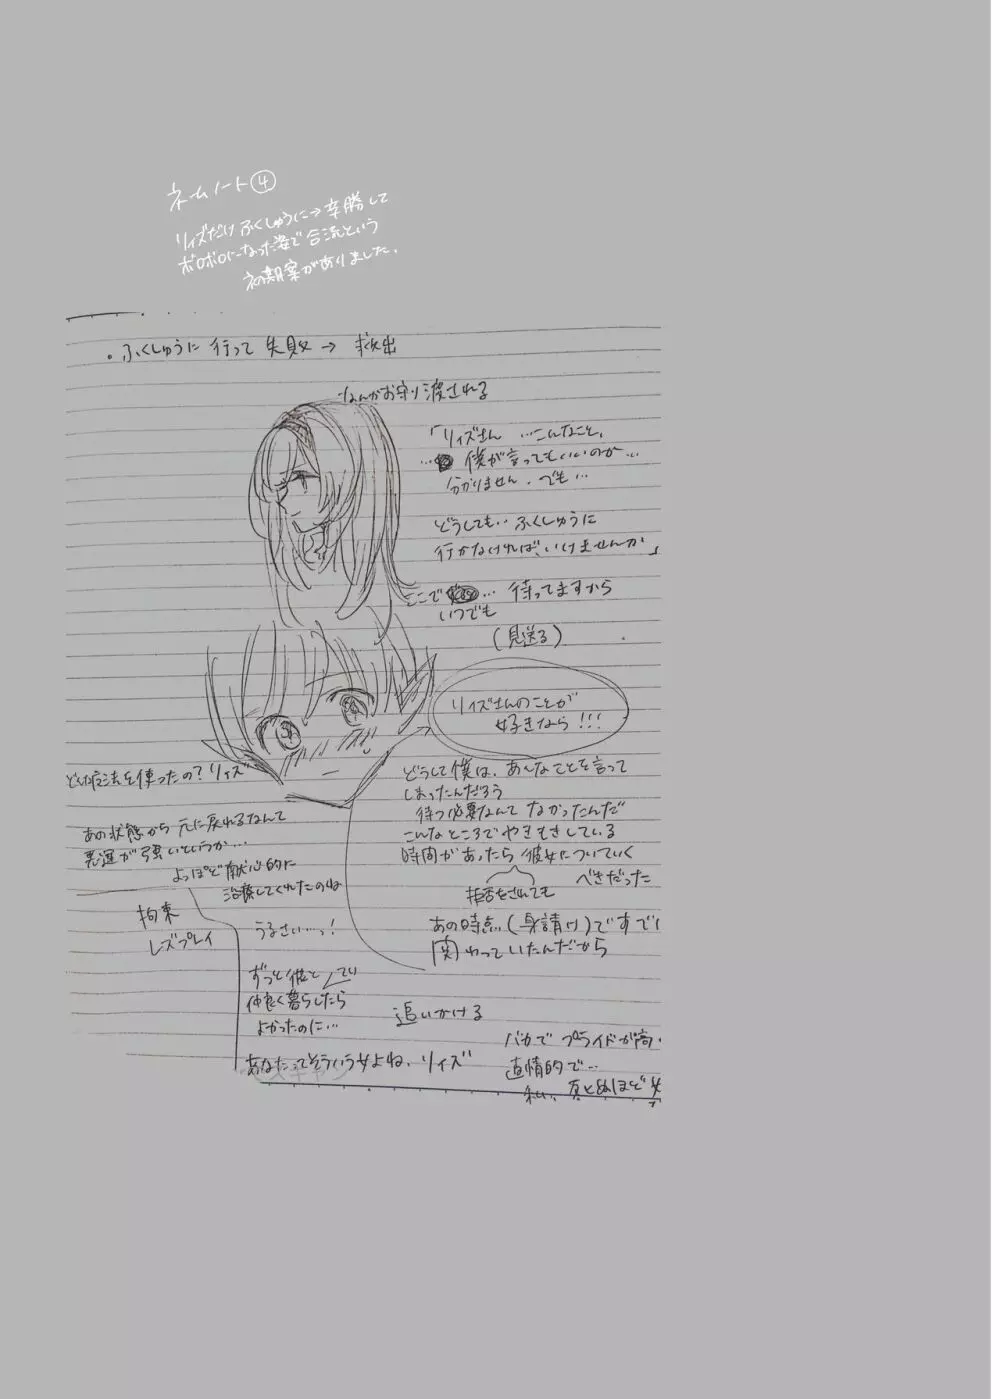 ネームノート④
リィズだけふくしゅうに→辛勝して
ボロボロになった姿で合流という
初期案がありました。
・ふくしゅうに行って失敗→救出
なんかお守り渡される
「リィズさん…こんなこと、
…僕が言ってもいいのか…
分かりません。でも…
どうしても‥ふくしゅうに
行かなければ、いけませんか」
ここで…待ってますから
いつでも
(見送る)
リィズさんのことが
好きなら!!!
どうして僕は、あんなことを言って
しまったんだろう
待つ必要なんてなかったんだ
こんなところでやきもきしている
時間があったら彼女についていく
べきだった
拒否をされても
あの時点(身請け)ですでに
関わっていたんだから
どんな魔法を使ったの?リィズ
あの状態から元に戻れるなんて
悪運が強いというか…
よっぽど献心的に
治療してくれたのね
拘束
レズプレイ
うるさい…っ!
ずっと彼と
仲良く暮らしてたら
よかったのに…
追いかける
あなたってそういう女よね、リィズ
バカでプライドが高い
直情的で…